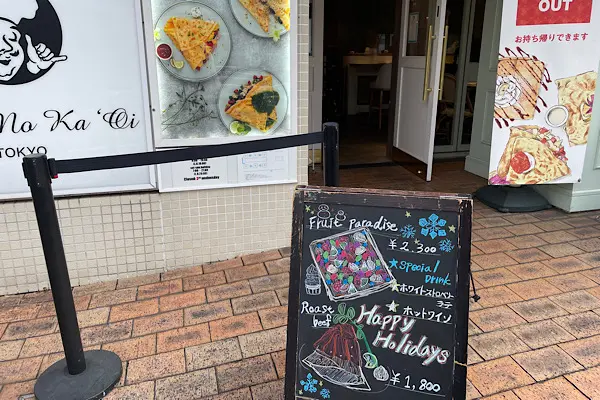 No Ka 'Oi
TOKYO
OUT
お持ち帰りできます
Fruit Paradise
¥2,300
★Special Drink
★ホワイトストロベリーラテ
★ホットワイン
Roast beef
Happy Holidays
¥1,800